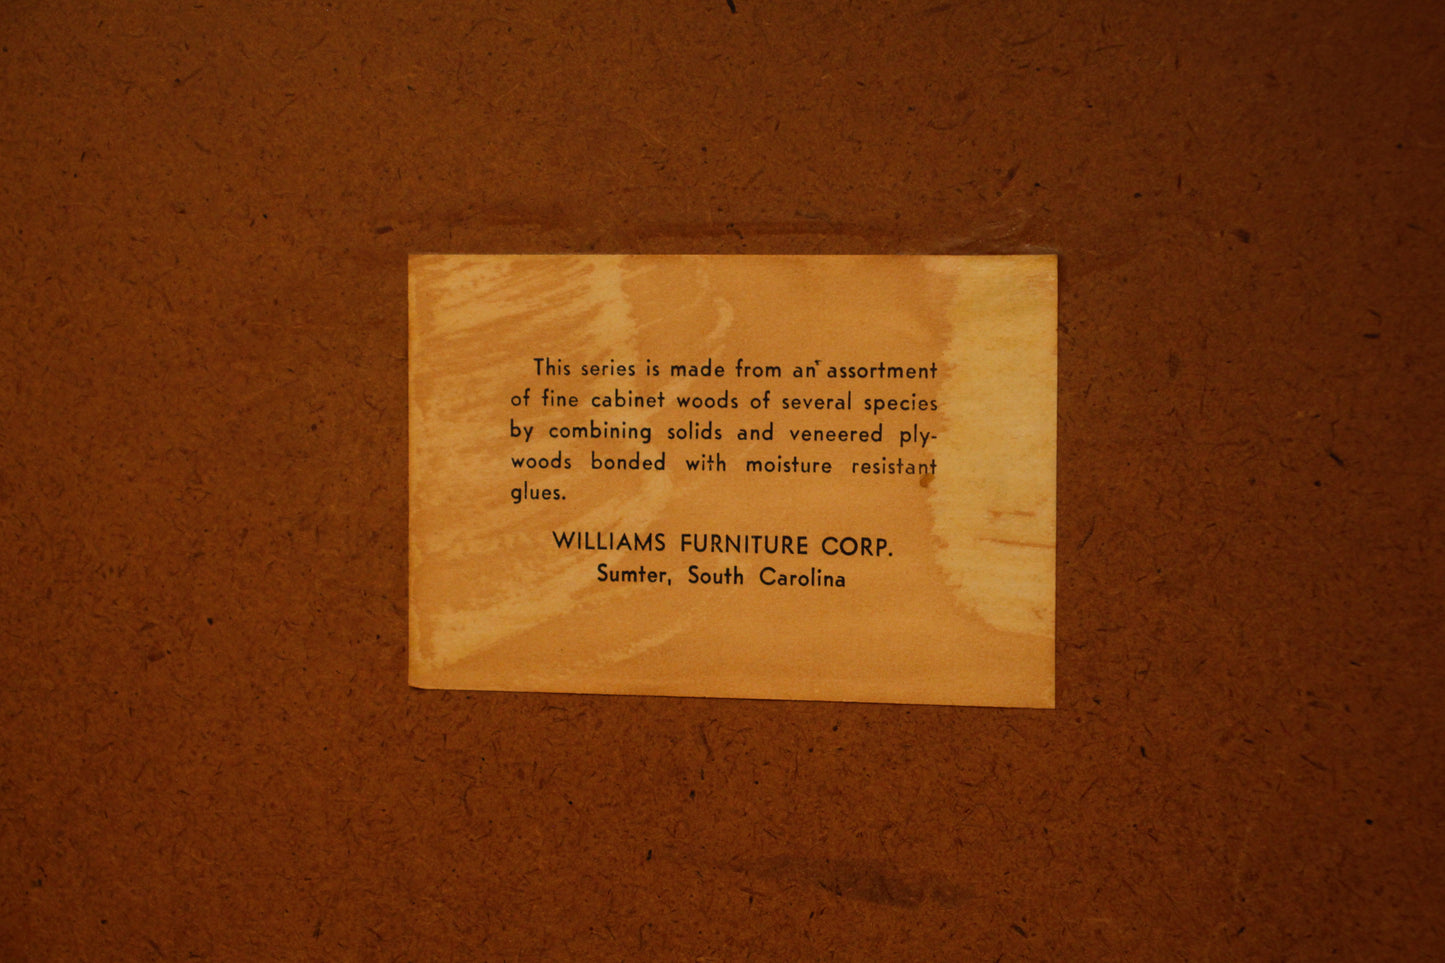 This series is made from an assortment
of fine cabinet woods of several species
by combining solids and veneered ply-
woods bonded with moisture resistant
glues.
WILLIAMS FURNITURE CORP.
Sumter, South Carolina